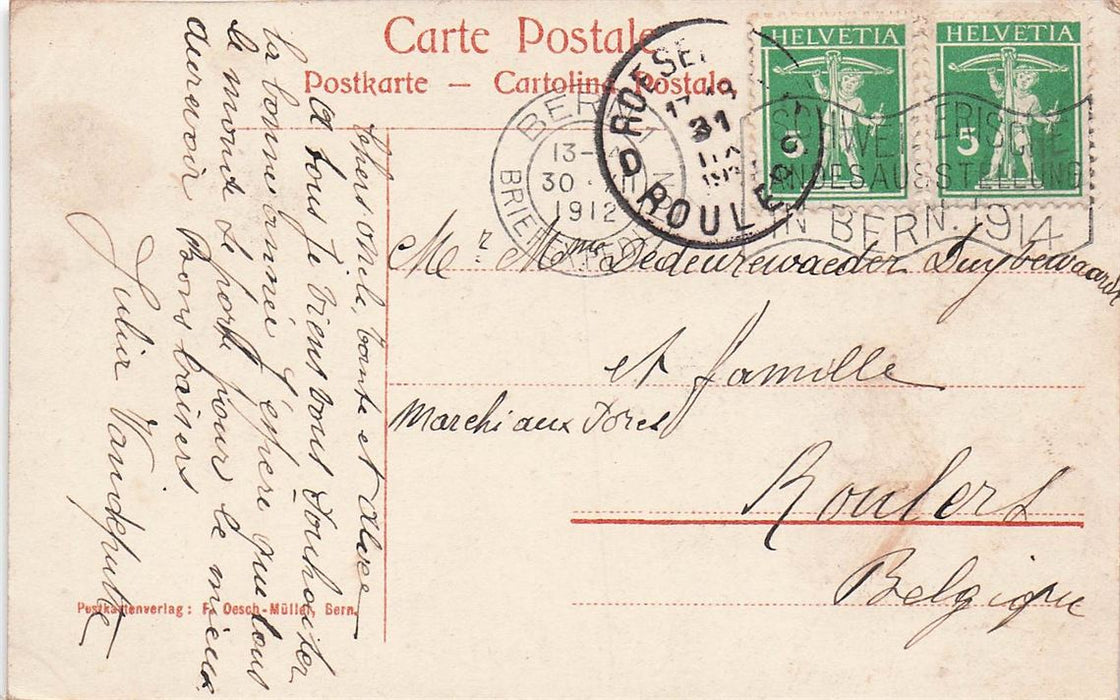 Carte Postale
Postkarte — Cartolina Postale
HELVETIA
5
HELVETIA
5
BERN
13-
30. II
1912
BRIEF
ROESEL
31
D ROULERS
SCHWEIZERISCHE
LANDESAUSSTELLUNG
IN BERN. 1914
Mr Mme Dedeurewaeder Duybewaardt
et famille
Marchi aux Tores
Roulers
Belgique
Chers oncle, tante et
A tous Je viens vous souhaiter
la bonne année J'éspère que tout
le monde se porte pour le mieux
aurevoir Bons baisers
Julia Vandeputte
Postkartenverlag: F. Oesch-Müller, Bern.